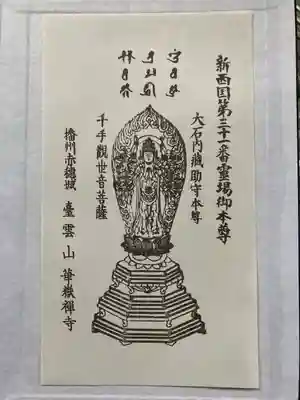 新西国第三十一番霊場御本尊
大石内蔵助守本尊
千手觀世音菩薩
播州赤穗城 臺雲山 華嶽禅寺